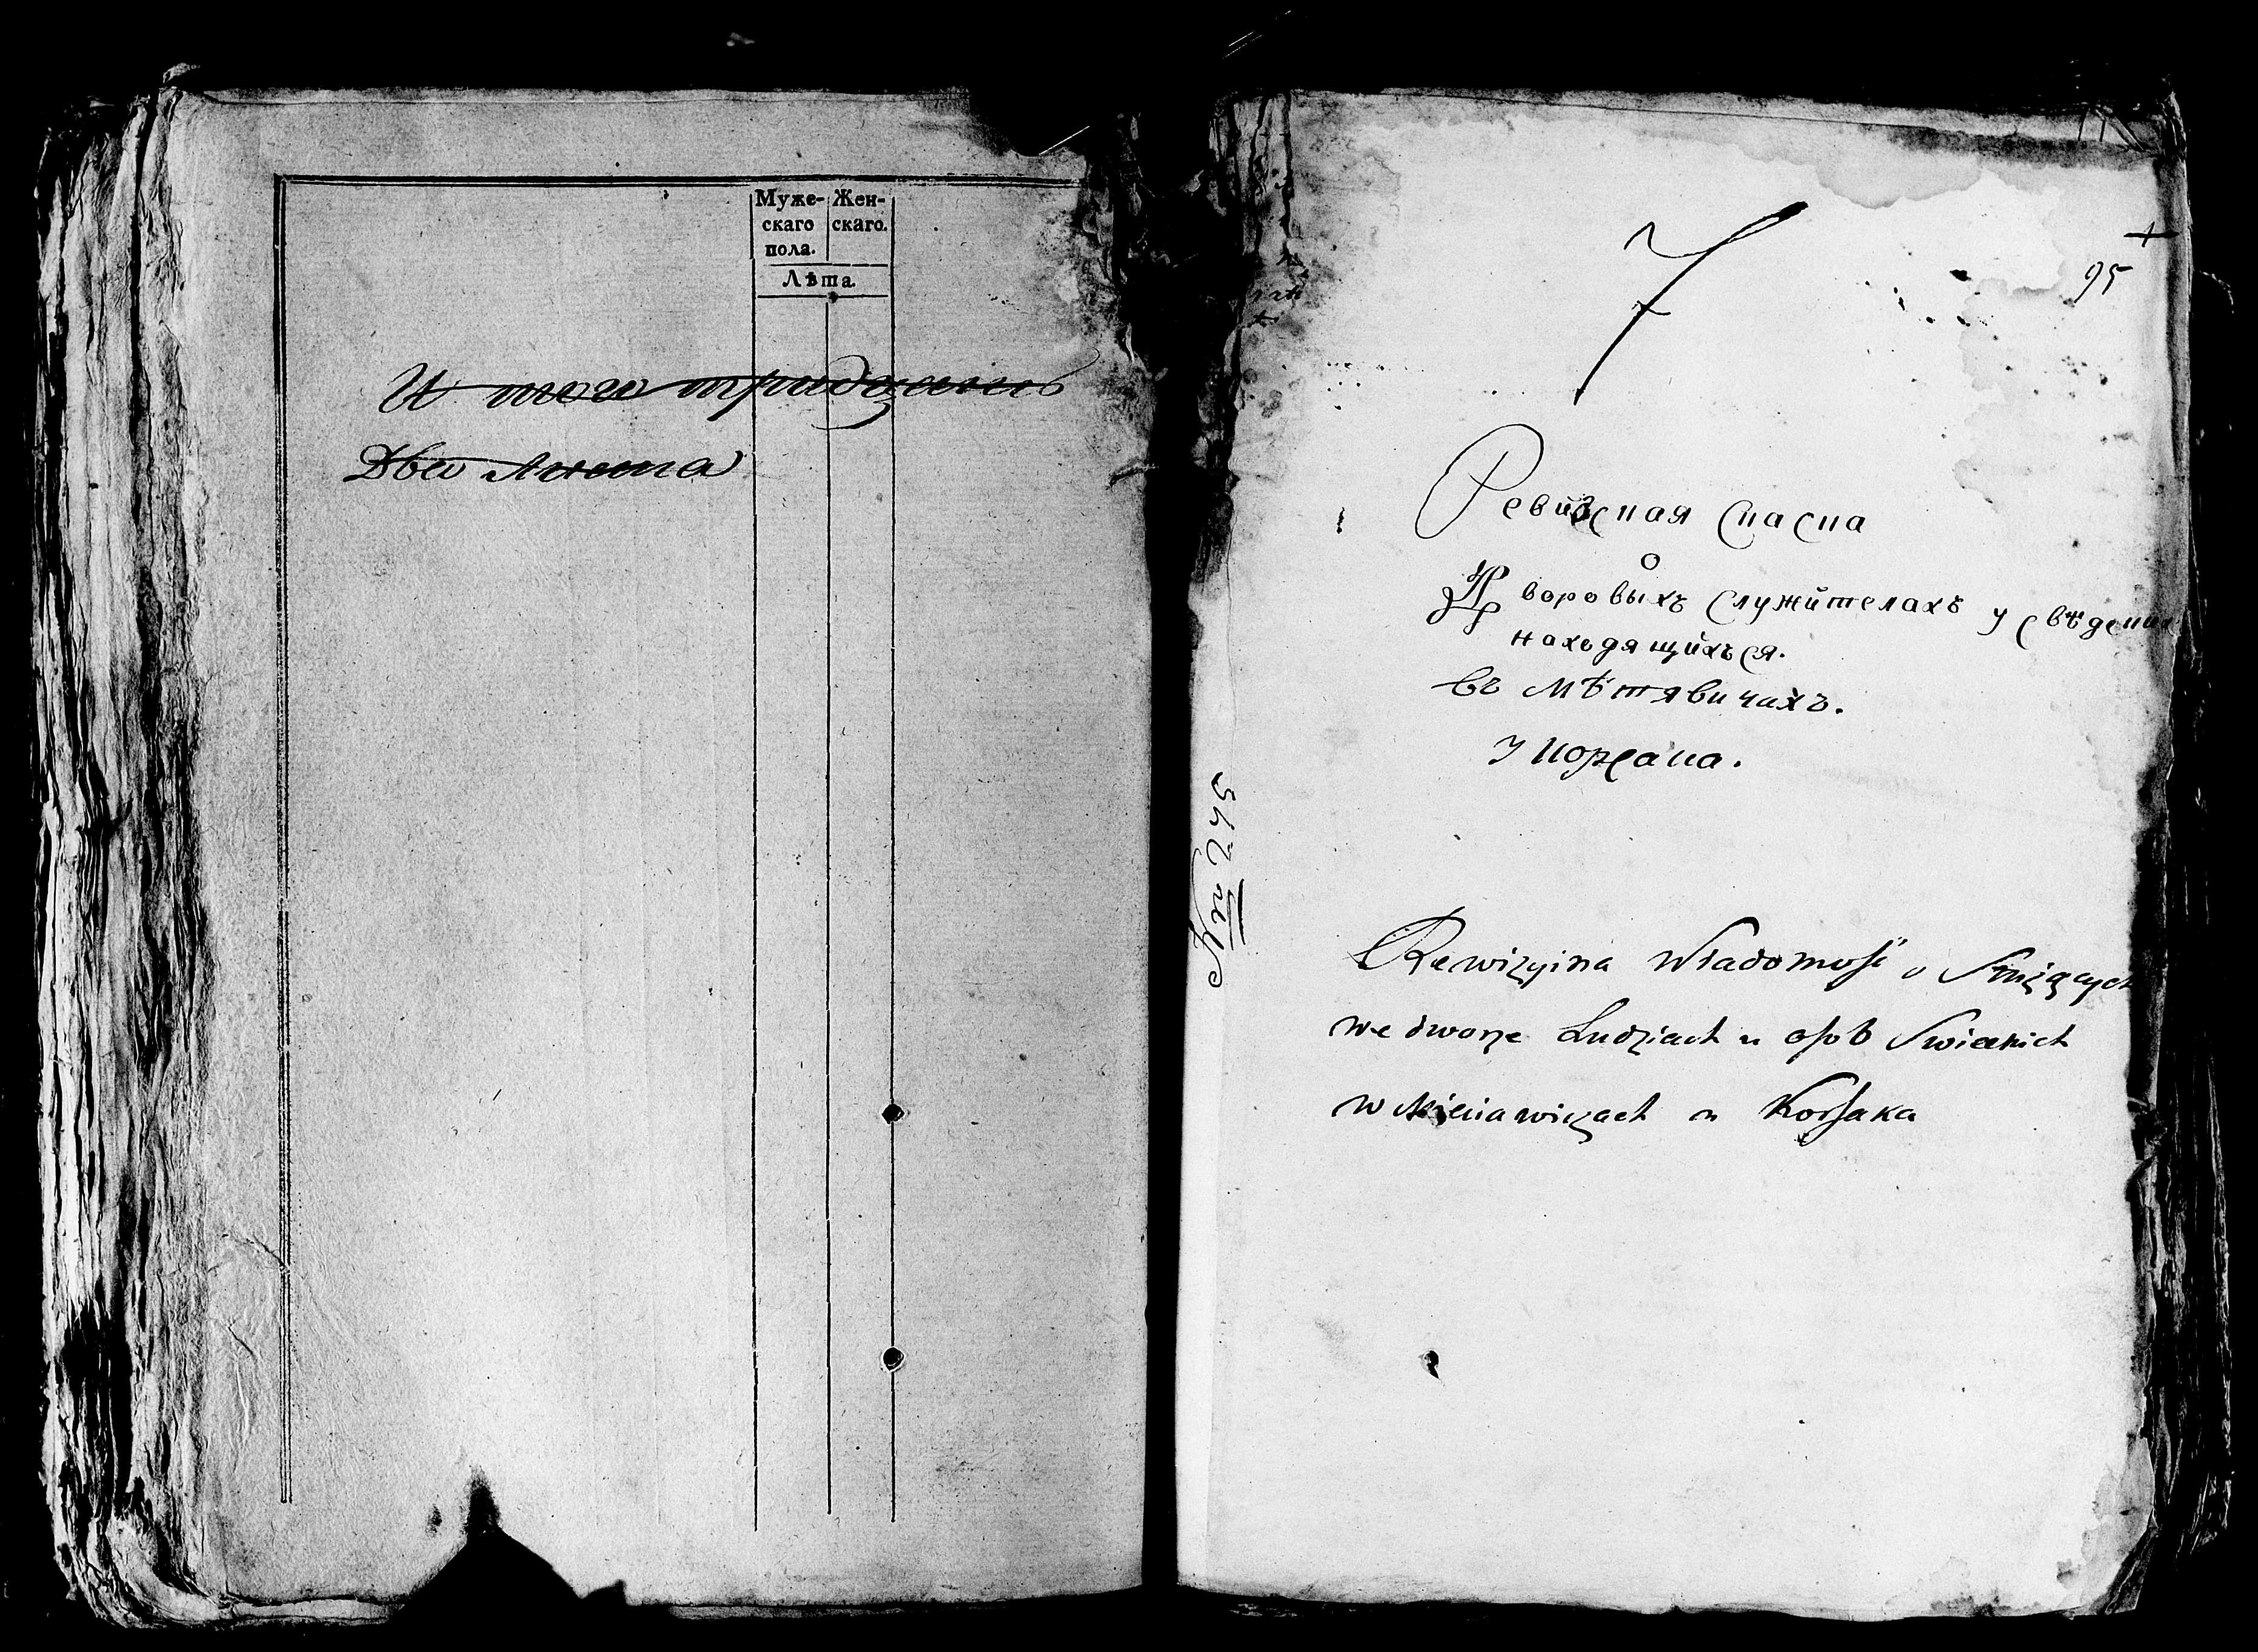 Муже-
скаго
пола.
Жен-
скаго.
Лѣта
И того тридцать
Два Листа
7
95
Ревизская Скаска
о
Дворовыхъ Служителахъ у Свѣдении
находящихъся.
въ Мѣтявичахъ.
У Корсака.
Nro 245
Rewizyina Wiadomość o Służących
we dworze Ludziach u osob Swieckich
w Mieciawiczach u Korsaka